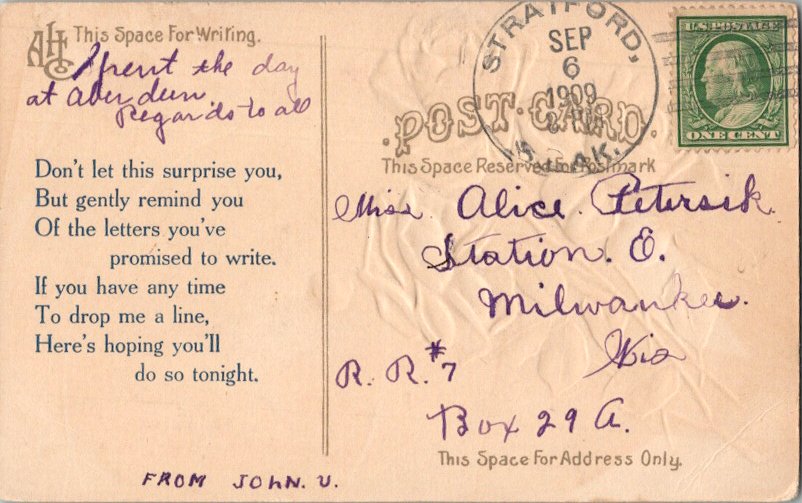 AHCo
This Space For Writing.
Spent the day
at Aberdeen.
Regards to all
Don't let this surprise you,
But gently remind you
Of the letters you've
promised to write.
If you have any time
To drop me a line,
Here's hoping you'll
do so tonight.
FROM JOHN. U.
STRATFORD,
SEP
6
1909
S. DAK.
U.S. POSTAGE
ONE CENT
POST-CARD.
This Space Reserved for Postmark
Miss. Alice. Petersik.
Station. E.
Milwaukee.
Wis
R. R. #7
Box 29 A.
This Space For Address Only.